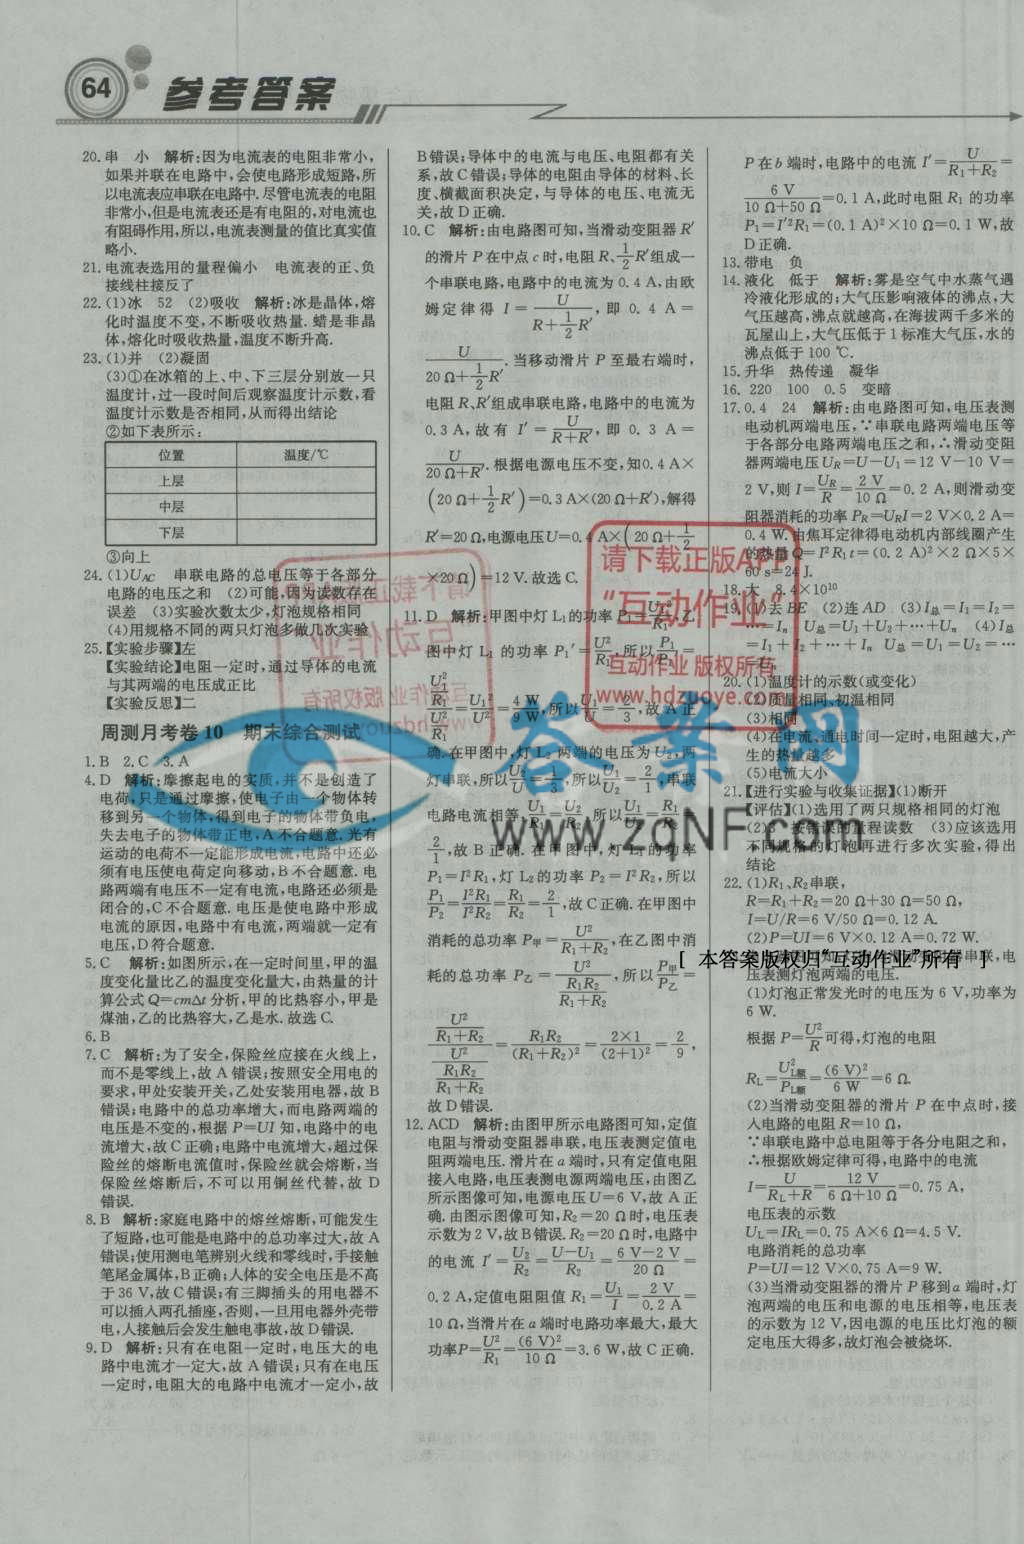 64 参考答案
20. 串 小 解析:因为电流表的电阻非常小,
如果并联在电路中,会使电路形成短路,所
以电流表应串联在电路中.尽管电流表的电阻
非常小,但是电流表还是有电阻的,对电流也
有阻碍作用,所以,电流表测量的值比真实值
略小.
21. 电流表选用的量程偏小 电流表的正、负
接线柱接反了
22. (1)冰 52 (2)吸收 解析:冰是晶体,熔
化时温度不变,不断吸收热量.蜡是非晶
体,熔化时吸收热量,温度不断升高.
23. (1)并 (2)凝固
(3)①在冰箱的上、中、下三层分别放一只
温度计,过一段时间后观察温度计示数,看
温度计示数是否相同,从而得出结论
②如下表所示:
位置 温度/℃
上层
中层
下层
③向上
24. (1)U_AC 串联电路的总电压等于各部分
电路的电压之和 (2)可能,因为读数存在
误差 (3)实验次数太少,灯泡规格相同
(4)用规格不同的两只灯泡多做几次实验
25.【实验步骤】左
【实验结论】电阻一定时,通过导体的电流
与其两端的电压成正比
【实验反思】二
周测月考卷10 期末综合测试
1. B 2. C 3. A
4. D 解析:摩擦起电的实质,并不是创造了
电荷,只是通过摩擦,使电子由一个物体转
移到另一个物体,得到电子的物体带负电,
失去电子的物体带正电,A不合题意.光有
运动的电荷不一定能形成电流,电路中还必
须有电压使电荷定向移动,B不合题意.电
路两端有电压不一定有电流,电路还必须是
闭合的,C不合题意.电压是使电路中形成
电流的原因,电路中有电流,两端就一定有
电压,D符合题意.
5. C 解析:如图所示,在一定时间里,甲的温
度变化量比乙的温度变化量大,由热量的计
算公式Q=cmΔt分析,甲的比热容小,甲是
煤油,乙的比热容大,乙是水.故选C.
6. B
7. C 解析:为了安全,保险丝应接在火线上,
而不是零线上,故A错误;按照安全用电的
要求,甲处安装开关,乙处安装用电器,故B
错误;电路中的总功率增大,而电路两端的
电压是不变的,根据P=UI知,电路中的电
流增大,故C正确;电路中电流增大,超过保
险丝的熔断电流值时,保险丝就会熔断,当
保险丝熔断后,不可以用铜丝代替,故D
错误.
8. B 解析:家庭电路中的熔丝熔断,可能发生
了短路,也可能是电路中的总功率过大,故A
错误;使用测电笔辨别火线和零线时,手接触
笔尾金属体,B正确;人体的安全电压是不高
于36 V,故C错误;有三脚插头的用电器不
可以插入两孔插座,否则,一旦用电器外壳带
电,人接触后会发生触电事故,故D错误.
9. D 解析:只有在电阻一定时,电压大的电
路中电流才一定大,故A错误;只有在电压
一定时,电阻大的电路中电流才一定小,故
B错误;导体中的电流与电压、电阻都有关
系,故C错误;导体的电阻由导体的材料、长
度、横截面积决定,与导体的电压、电流无
关,故D正确.
10. C 解析:由电路图可知,当滑动变阻器R′
的滑片P在中点c时,电阻R、1/2R′组成一
个串联电路,电路中的电流为0.4 A,由欧
姆定律得I=U/(R+1/2R′),即0.4 A=
U/(20 Ω+1/2R′).当移动滑片P至最右端时,
电阻R、R′组成串联电路,电路中的电流为
0.3 A,故有I′=U/(R+R′),即0.3 A=
U/(20 Ω+R′).根据电源电压不变,知0.4 A×
(20 Ω+1/2R′)=0.3 A×(20 Ω+R′),解得
R′=20 Ω,电源电压U=0.4 A×(20 Ω+1/2
×20 Ω)=12 V.故选C.
11. D 解析:甲图中灯L₁的功率P₁=U₁²/R₁,乙
图中灯L₁的功率P₁′=U²/R₁,所以P₁/P₁′=
(U₁²/R₁)/(U²/R₁)=U₁²/U²=4 W/9 W,所以U₁/U=2/3,故A正
确.在甲图中,灯L₂两端的电压为U₂,两
灯串联,所以U₂/U=1/3,所以U₁/U₂=2/1,串联
电路电流相等,U₁/R₁=U₂/R₂,所以U₁/U₂=R₁/R₂=
2/1,故B正确.在甲图中,灯L₁的功率
P₁=I²R₁,灯L₂的功率P₂=I²R₂,所以
P₁/P₂=I²R₁/I²R₂=R₁/R₂=2/1,故C正确.在甲图中
消耗的总功率P甲=U²/(R₁+R₂),在乙图中消
耗的总功率P乙=U²/(R₁R₂/(R₁+R₂)),所以P甲/P乙=
(U²/(R₁+R₂))/(U²/(R₁R₂/(R₁+R₂)))=R₁R₂/(R₁+R₂)²=2×1/(2+1)²=2/9,
故D错误.
12. ACD 解析:由图甲所示电路图可知,定值
电阻与滑动变阻器串联,电压表测定值电
阻两端电压.滑片在a端时,只有定值电阻
接入电路,电压表测电源两端电压,由图乙
所示图像可知,电源电压U=6 V,故A正
确.由图示图像可知,R₂=20 Ω时,电压表
示数为2 V,故B错误.R₂=20 Ω时,电路中
的电流I′=U₂/R₂=(U−U₁)/R₂=(6 V−2 V)/20 Ω=
0.2 A,定值电阻阻值R₁=U₁/I=2 V/0.2 A=
10 Ω,当滑片在a端时电路功率最大,最大
功率P=U²/R₁=(6 V)²/10 Ω=3.6 W,故C正确.
P在b端时,电路中的电流I′=U/(R₁+R₂)=
6 V/(10 Ω+50 Ω)=0.1 A,此时电阻R₁的功率
P₁=I′²R₁=(0.1 A)²×10 Ω=0.1 W,故
D正确.
13. 带电 负
14. 液化 低于 解析:雾是空气中水蒸气遇
冷液化形成的;大气压影响液体的沸点,大
气压越高,沸点就越高,在海拔两千多米的
瓦屋山上,大气压低于1标准大气压,水的
沸点低于100 ℃.
15. 升华 热传递 凝华
16. 220 100 0.5 变暗
17. 0.4 24 解析:由电路图可知,电压表测
电动机两端电压,∵串联电路两端电压等
于各部分电路两端电压之和,∴滑动变阻
器两端电压U_R=U−U₁=12 V−10 V=
2 V,则I=U_R/R=2 V/10 Ω=0.2 A,则滑动变
阻器消耗的功率P_R=U_RI=2 V×0.2 A=
0.4 W.由焦耳定律得电动机内部线圈产生
的热量Q=I²R₁t=(0.2 A)²×2 Ω×5×
60 s=24 J.
18. 大 8.4×10¹⁰
19. (1)去BE (2)连AD (3)I总=I₁=I₂=
…=Iₙ U总=U₁+U₂+…+Uₙ (4)I总
=I₁+I₂+…+Iₙ U总=U₁=U₂=…
=Uₙ
20. (1)温度计的示数(或变化)
(2)质量相同 初温相同
(3)相同
(4)在电流、通电时间一定时,电阻越大,产
生的热量越多
(5)电流大小
21.【进行实验与收集证据】(1)断开
【评估】(1)选用了两只规格相同的灯泡
(2)3 按错误的量程读数 (3)应该选用
不同规格的灯泡再进行多次实验,得出
结论
22. (1)R₁、R₂串联,
R=R₁+R₂=20 Ω+30 Ω=50 Ω,
I=U/R=6 V/50 Ω=0.12 A.
(2)P=UI=6 V×0.12 A=0.72 W.
串联,电
压表测灯泡两端的电压.
(1)灯泡正常发光时的电压为6 V,功率为
6 W.
根据P=U²/R可得,灯泡的电阻
R_L=U²_L额/P_L额=(6 V)²/6 W=6 Ω.
(2)当滑动变阻器的滑片P在中点时,接
入电路的电阻R=10 Ω,
∵串联电路中总电阻等于各分电阻之和,
∴根据欧姆定律可得,电路中的电流
I=U/(R_L+R)=12 V/(6 Ω+10 Ω)=0.75 A,
电压表的示数
U_L=IR_L=0.75 A×6 Ω=4.5 V.
电路消耗的总功率
P=UI=12 V×0.75 A=9 W.
(3)当滑动变阻器的滑片P移到a端时,灯
泡两端的电压和电源的电压相等,电压表
的示数为12 V,因电源的电压比灯泡的额
定电压大得多,故灯泡会被烧坏.
请下载正版APP
“互动作业”
互动作业 版权所有
www.hdzuoye.com
答案网
www.zqNF.com
[ 本答案版权归“互动作业”所有 ]